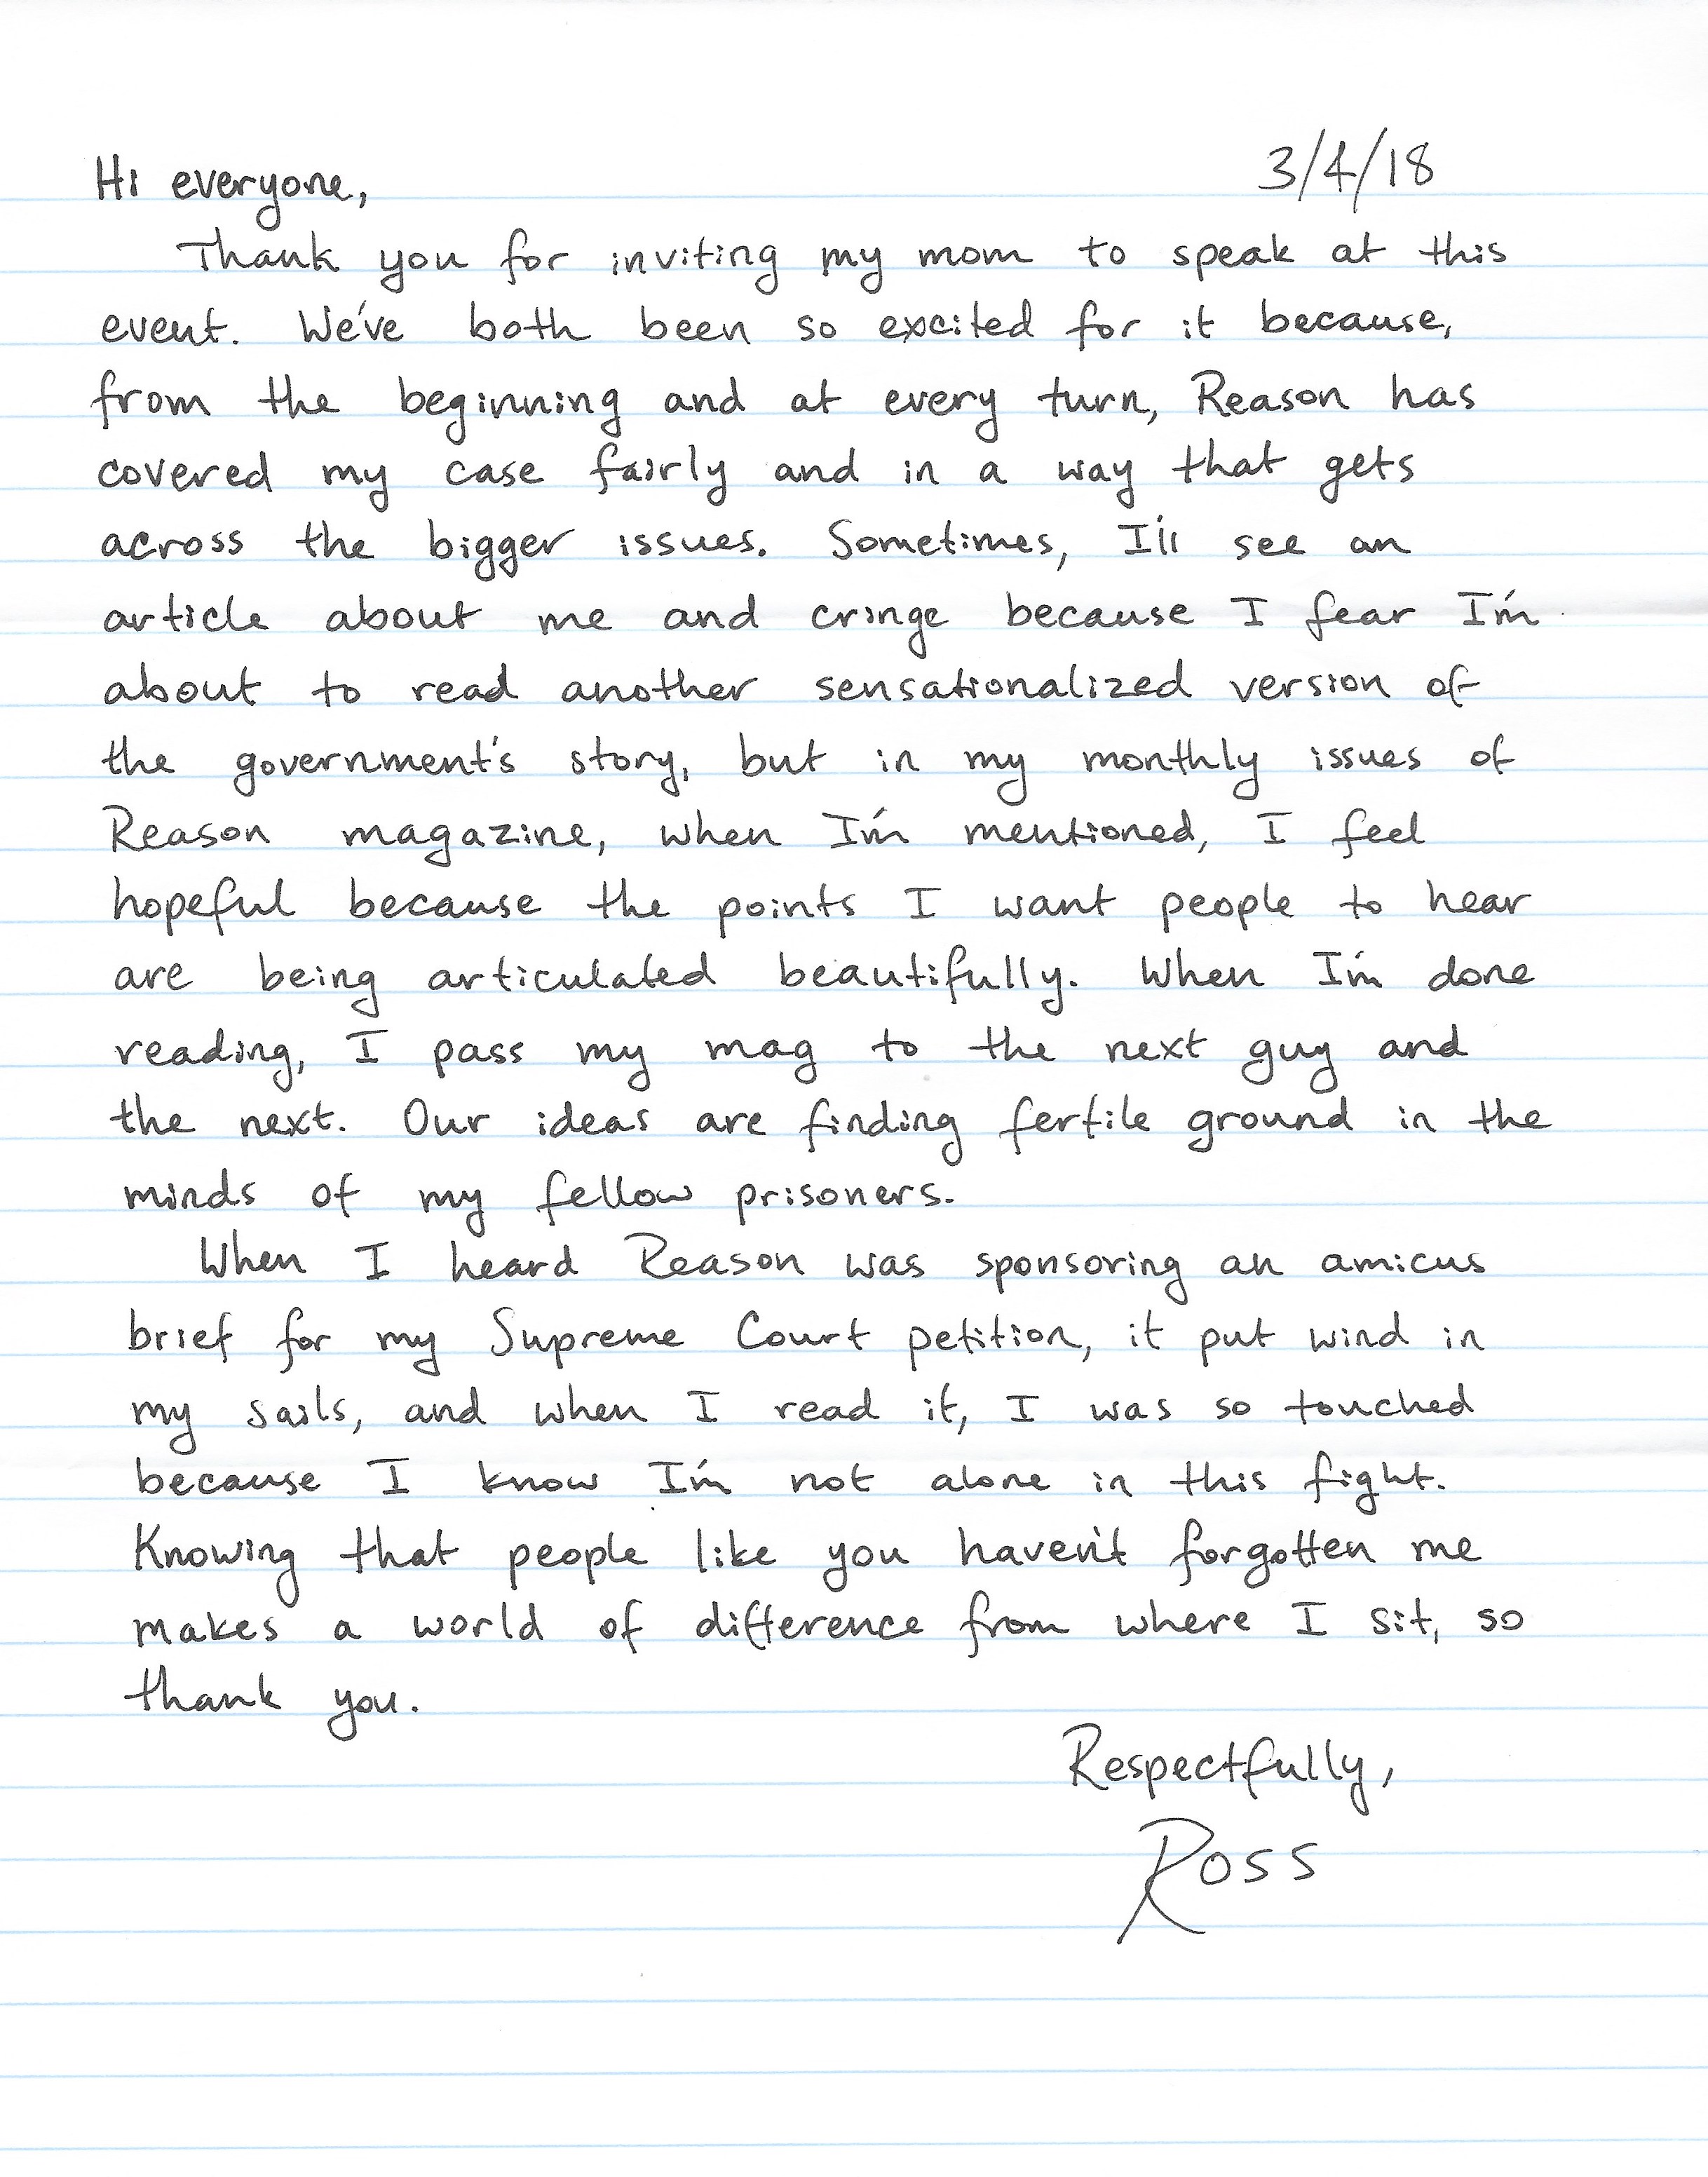 Hi everyone, 3/4/18
Thank you for inviting my mom to speak at this
event. We've both been so excited for it because,
from the beginning and at every turn, Reason has
covered my case fairly and in a way that gets
across the bigger issues. Sometimes, I'll see an
article about me and cringe because I fear I'm
about to read another sensationalized version of
the government's story, but in my monthly issues of
Reason magazine, when I'm mentioned, I feel
hopeful because the points I want people to hear
are being articulated beautifully. When I'm done
reading, I pass my mag to the next guy and
the next. Our ideas are finding fertile ground in the
minds of my fellow prisoners.
When I heard Reason was sponsoring an amicus
brief for my Supreme Court petition, it put wind in
my sails, and when I read it, I was so touched
because I know I'm not alone in this fight.
Knowing that people like you haven't forgotten me
makes a world of difference from where I sit, so
thank you.
Respectfully,
Ross